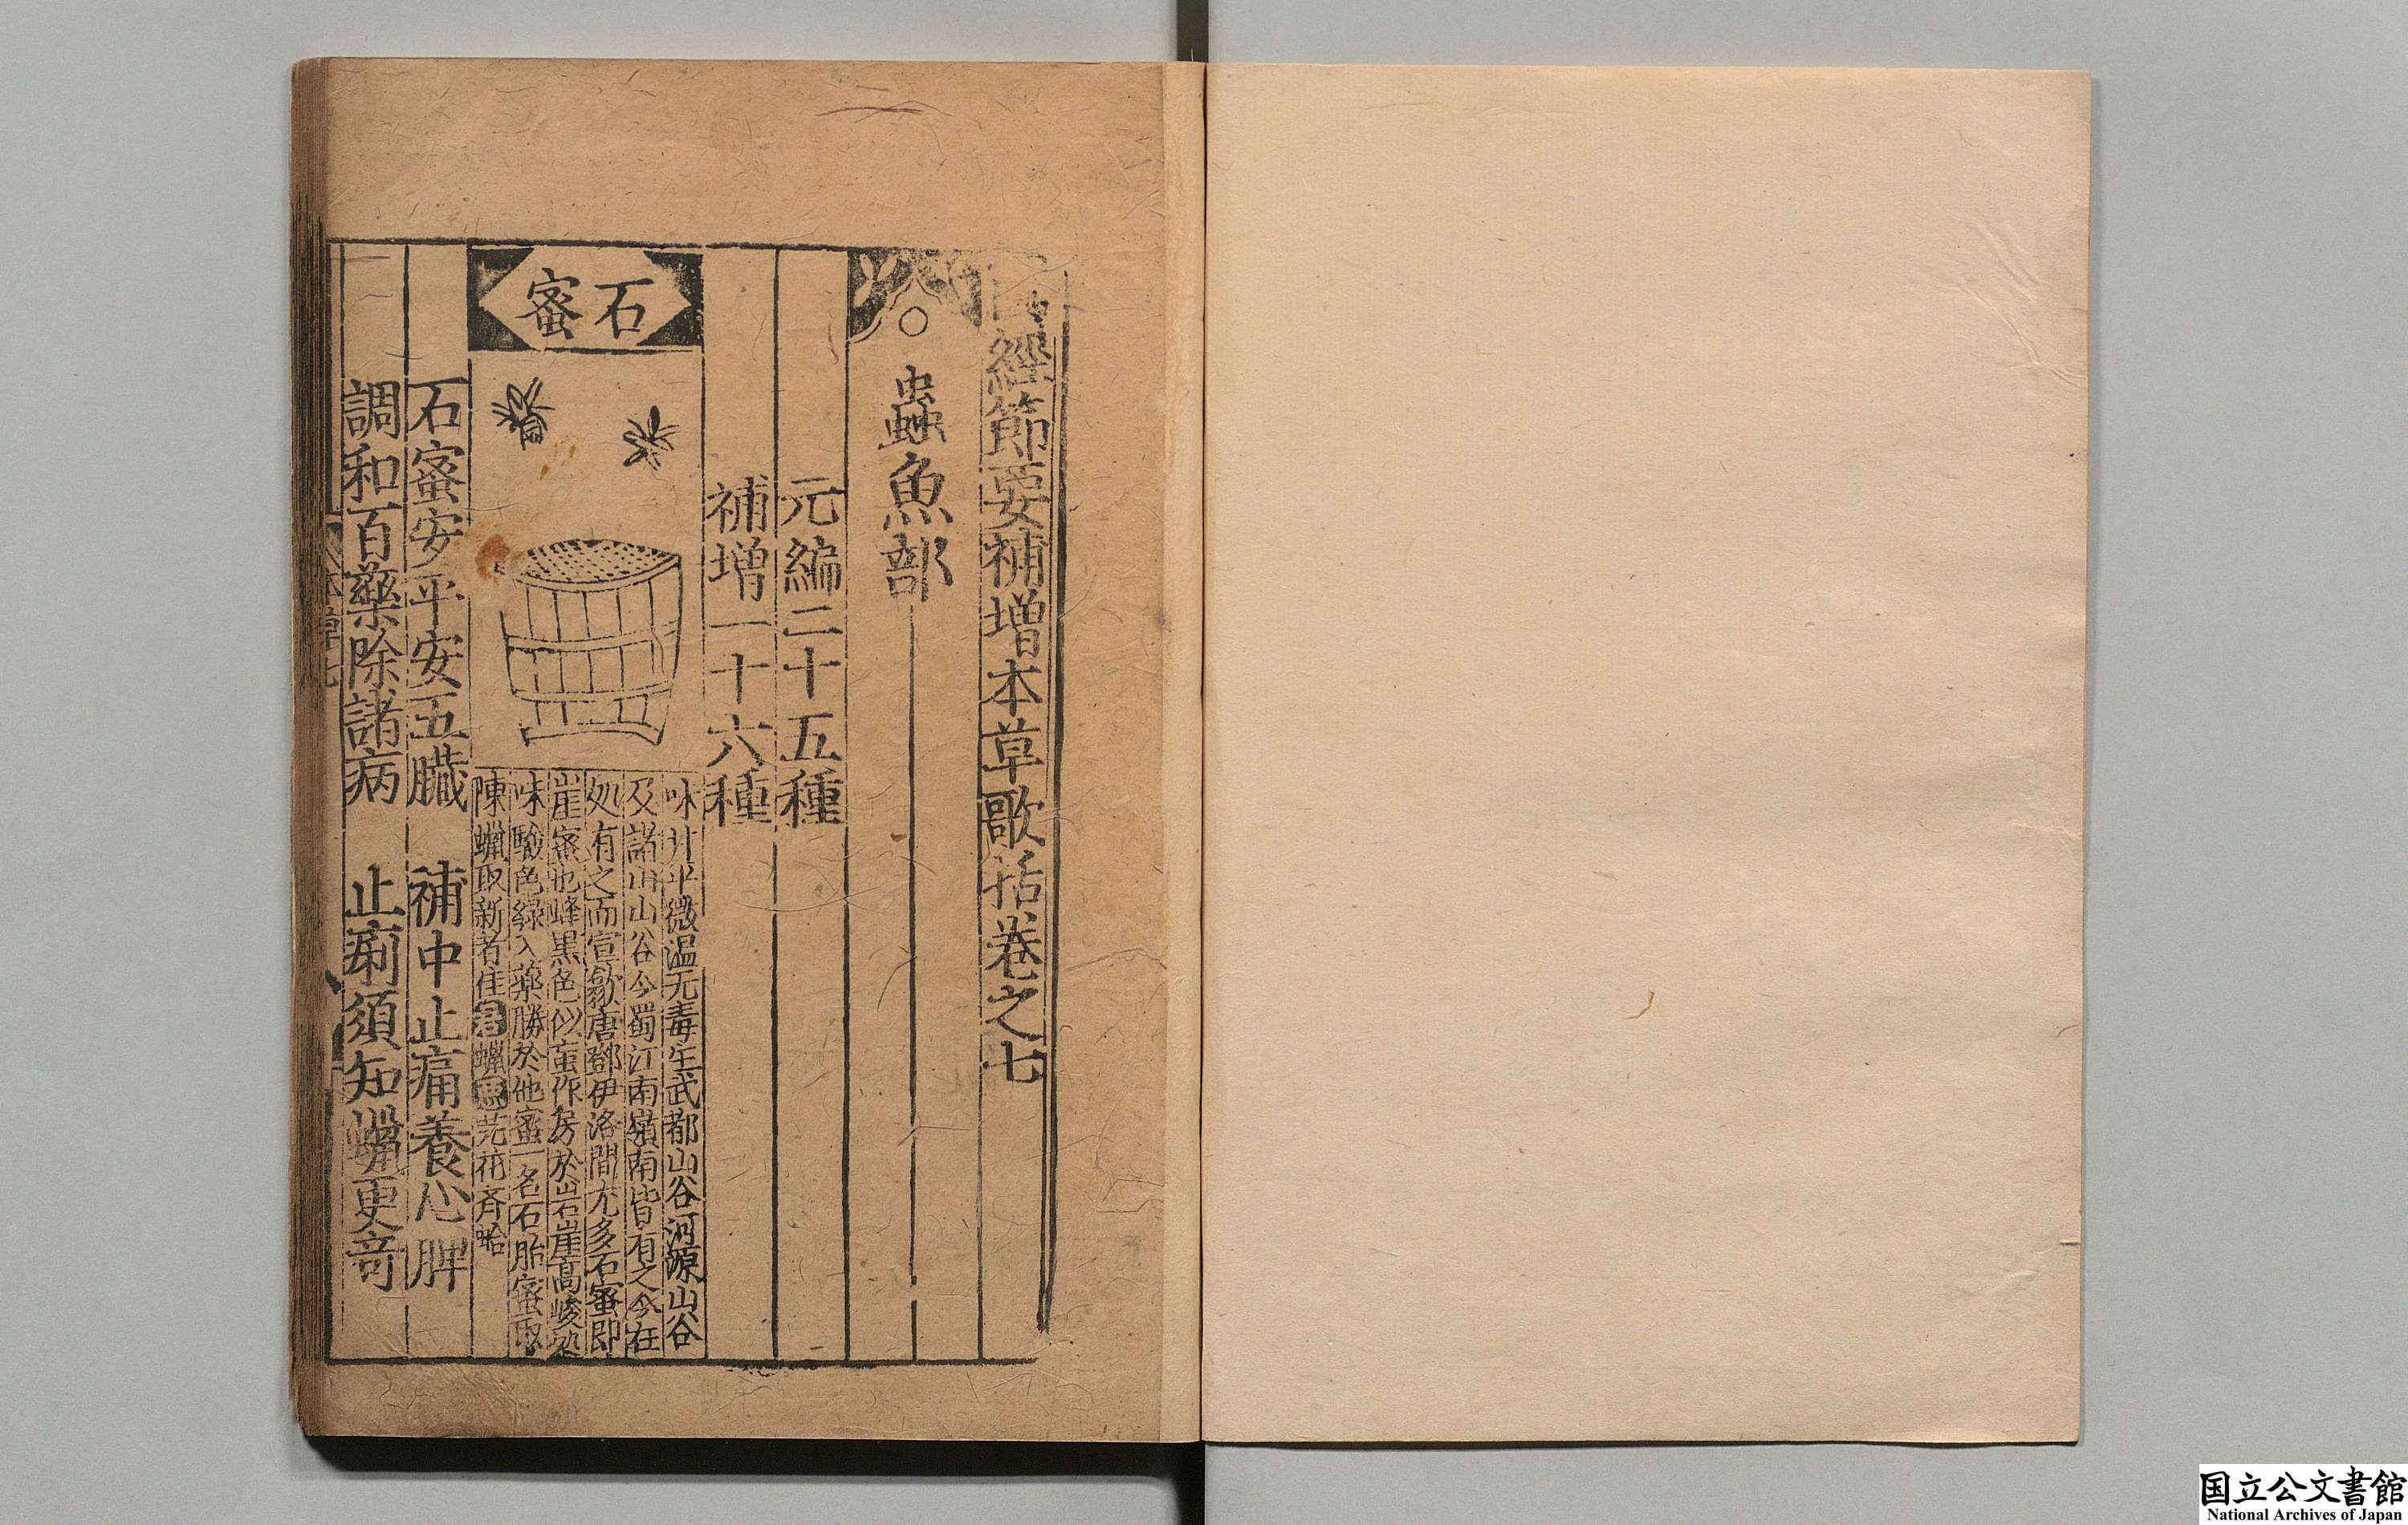 圖經節要補增本草歌括卷之七
○蟲魚部
元編二十五種
補增一十六種
石蜜
味甘平微温无毒生武都山谷河源山谷
及諸山山谷今蜀江南嶺南皆有之今在
処有之而宣歙唐鄧伊洛間尤多石蜜即
崖蜜也蜂黒色似䖟作房於岩崖高峻処
味驗色緑入藥勝於他蜜一名石胎蜜取
陳蠟取新者佳君蠟惡芫花斉蛤
石蜜安平安五臓　補中止痛養心脾
調和百藥除諸病　止痢須知蠟更竒
国立公文書館
National Archives of Japan